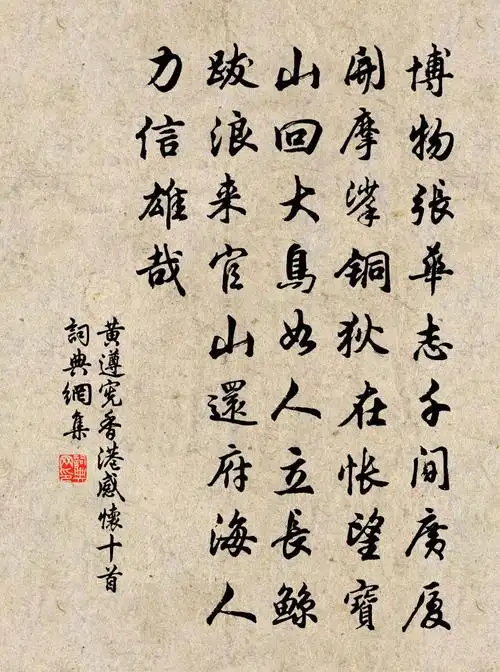 博物張華志千間廣厦
開摩挲銅狄在悵望寶
山回大鳥如人立長鯨
跋浪来官山還府海人
力信雄哉
黄遵宪香港感懷十首
詞典網集